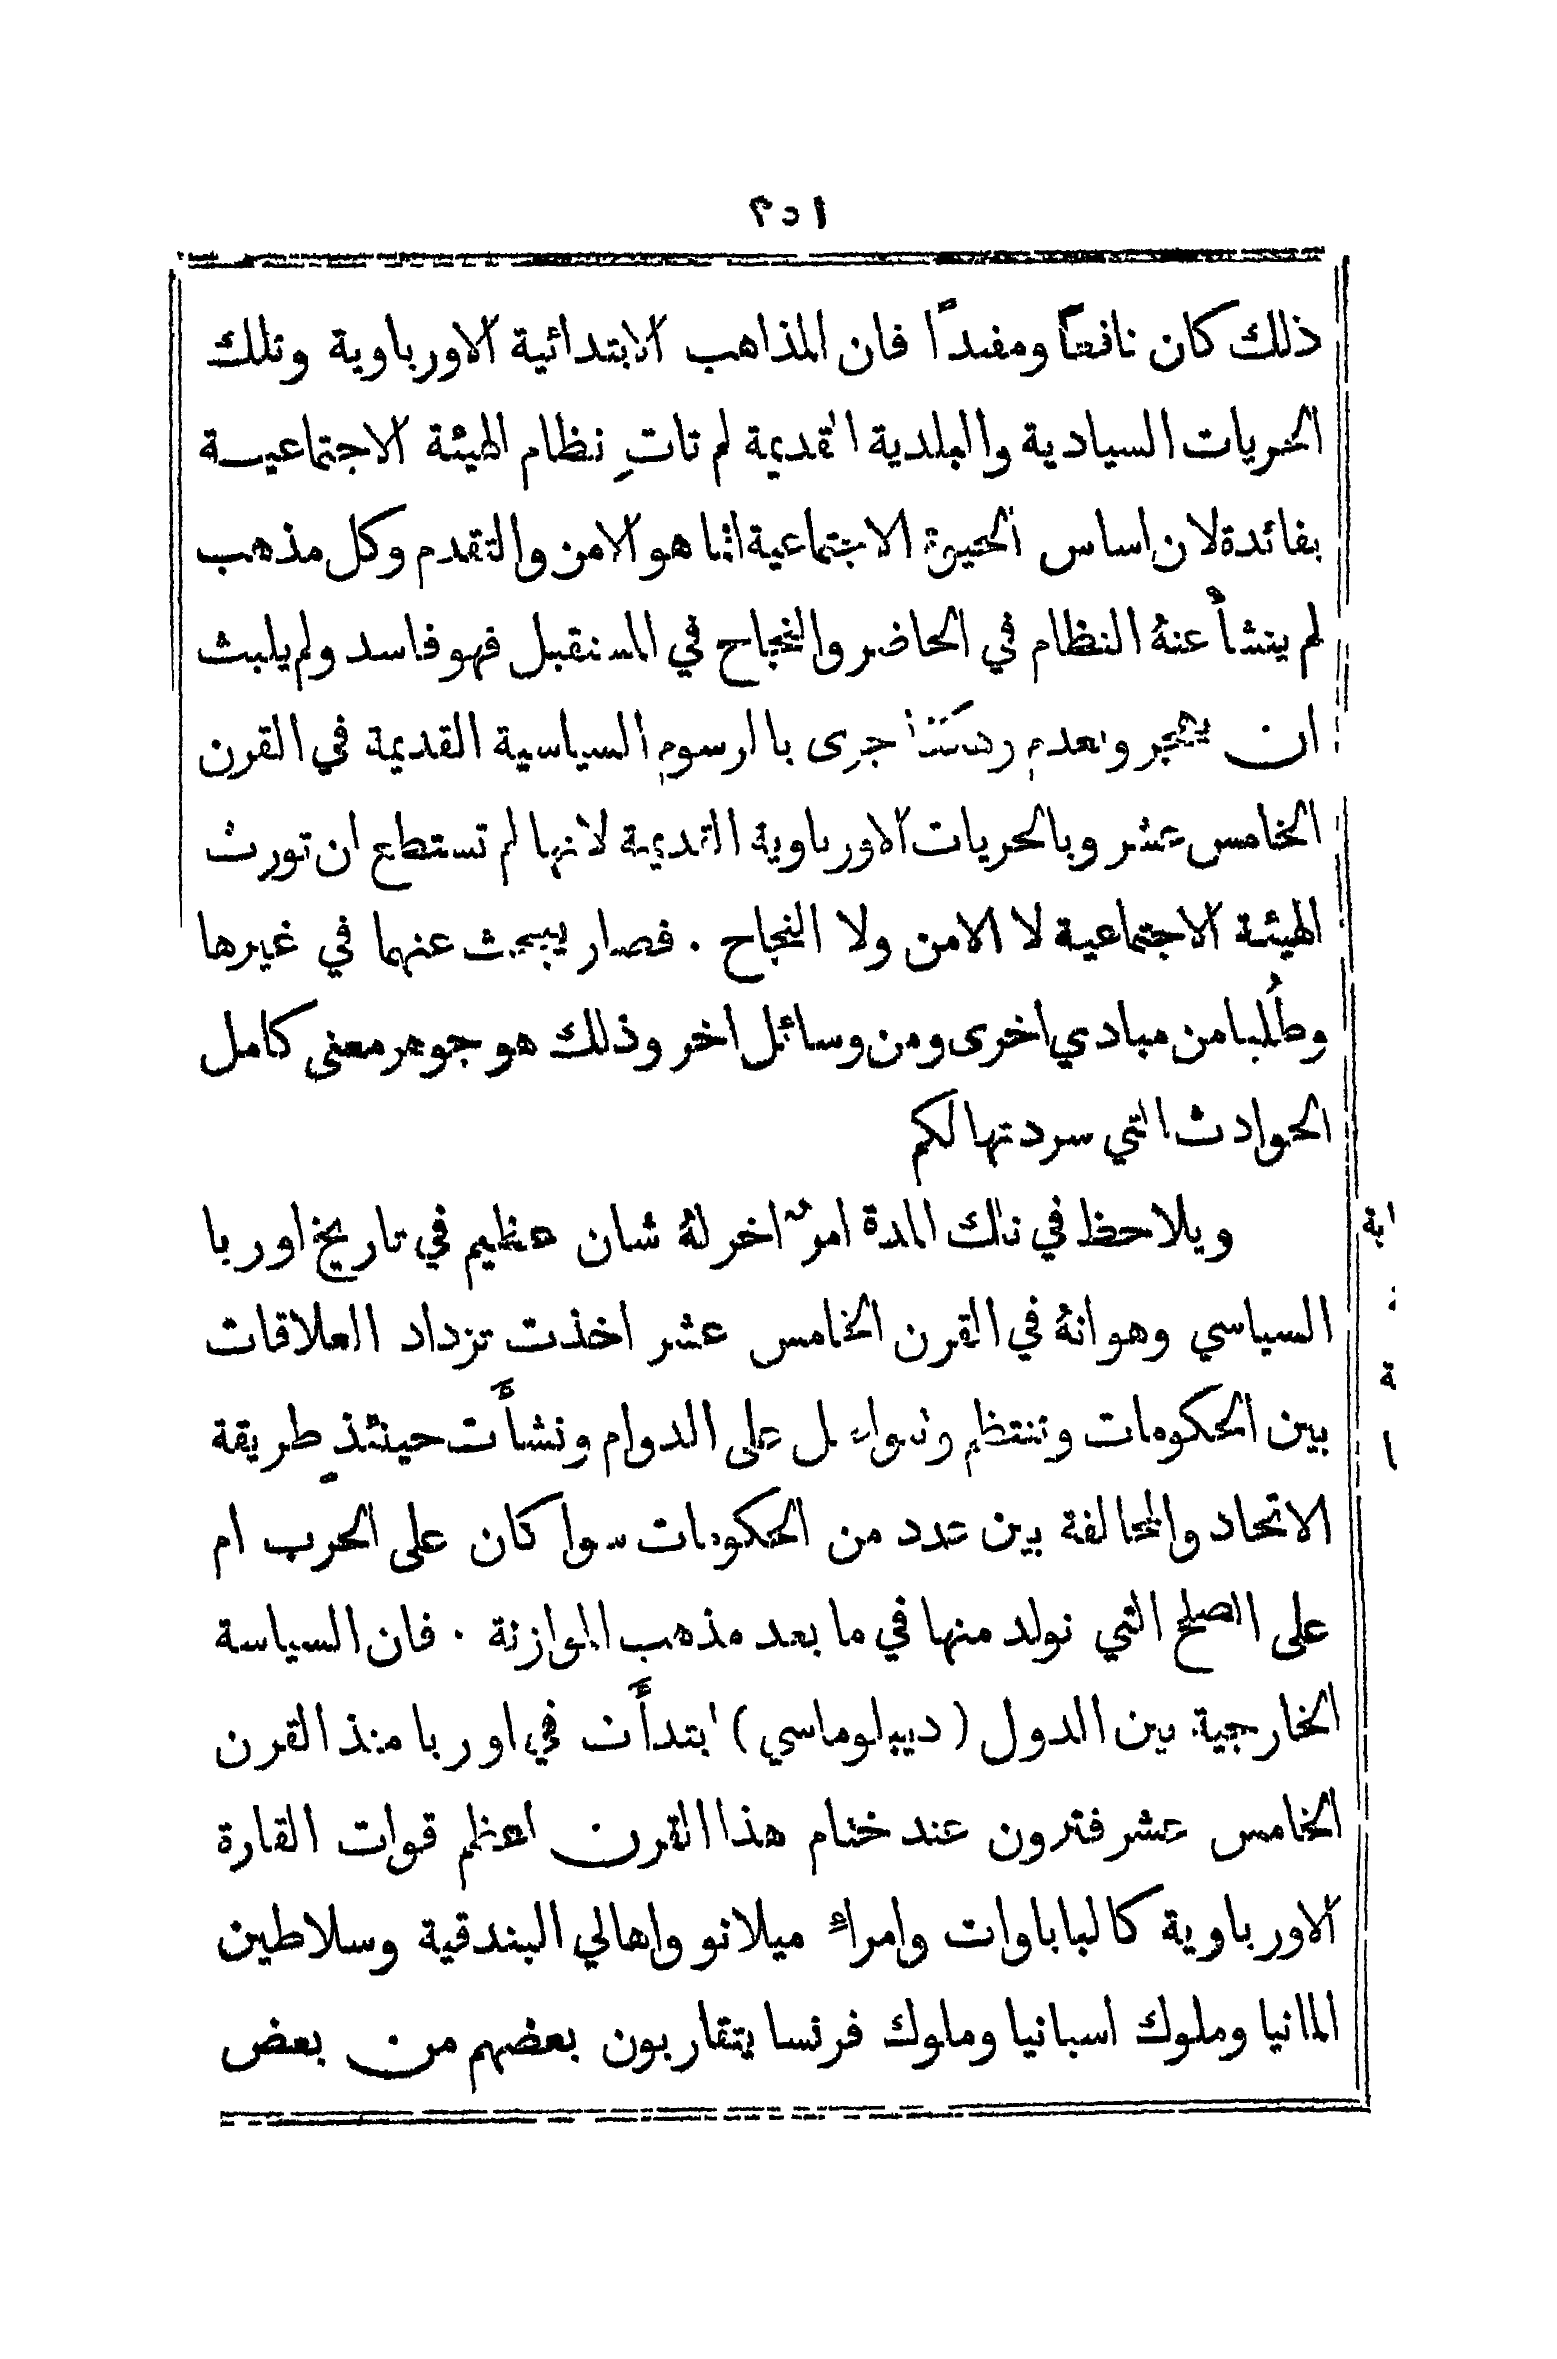 ٢٥١
ذلك كان نافعاً ومفيداً فان المذاهب الابتدائية الاورباوية وتلك
الحريات السيادية والبلدية القديمة لم تاتِ نظام الهيئة الاجتماعيــة
بفائدة لان اساس الحيوة الاجتماعية انما هو الامن والتقدم وكل مذهب
لم ينشأْ عنهُ النظام في الحاضر والنجاح في المستقبل فهو فاسد ولم يلبث
ان يهجر ويعدم وهكذا جرى بالرسوم السياسية القديمة في القرن
الخامس عشر وبالحريات الاورباوية القديمة لانها لم تستطع ان تورث
الهيئة الاجتماعية لا الامن ولا النجاح . فصار يبحث عنهما في غيرها
وطُلبا من مبادي اخرى ومن وسائل اخر وذلك هو جوهر معنى كامل
الحوادث التي سردتها لكم
ويلاحظ في تلك المدة امرٌ اخر لهُ شان عظيم في تاريخ اوربا
السياسي وهو انهُ في القرن الخامس عشر اخذت تزداد العلاقات
بين الحكومات وتنتظم وتتواصل على الدوام ونشأَت حينئذٍ طريقة
الاتحاد والمحالفة بين عدد من الحكومات سوا كان على الحرب ام
على الصلح التي تولد منها في ما بعد مذهب الموازنة . فان السياسة
الخارجية بين الدول (ديبلوماسي) ابتدأَت في اوربا منذ القرن
الخامس عشر فترون عند ختام هذا القرن اعظم قوات القارة
الاورباوية كالباباوات وامراء ميلانو واهالي البندقية وسلاطين
المانيا وملوك اسبانيا وملوك فرنسا يتقاربون بعضهم من بعض